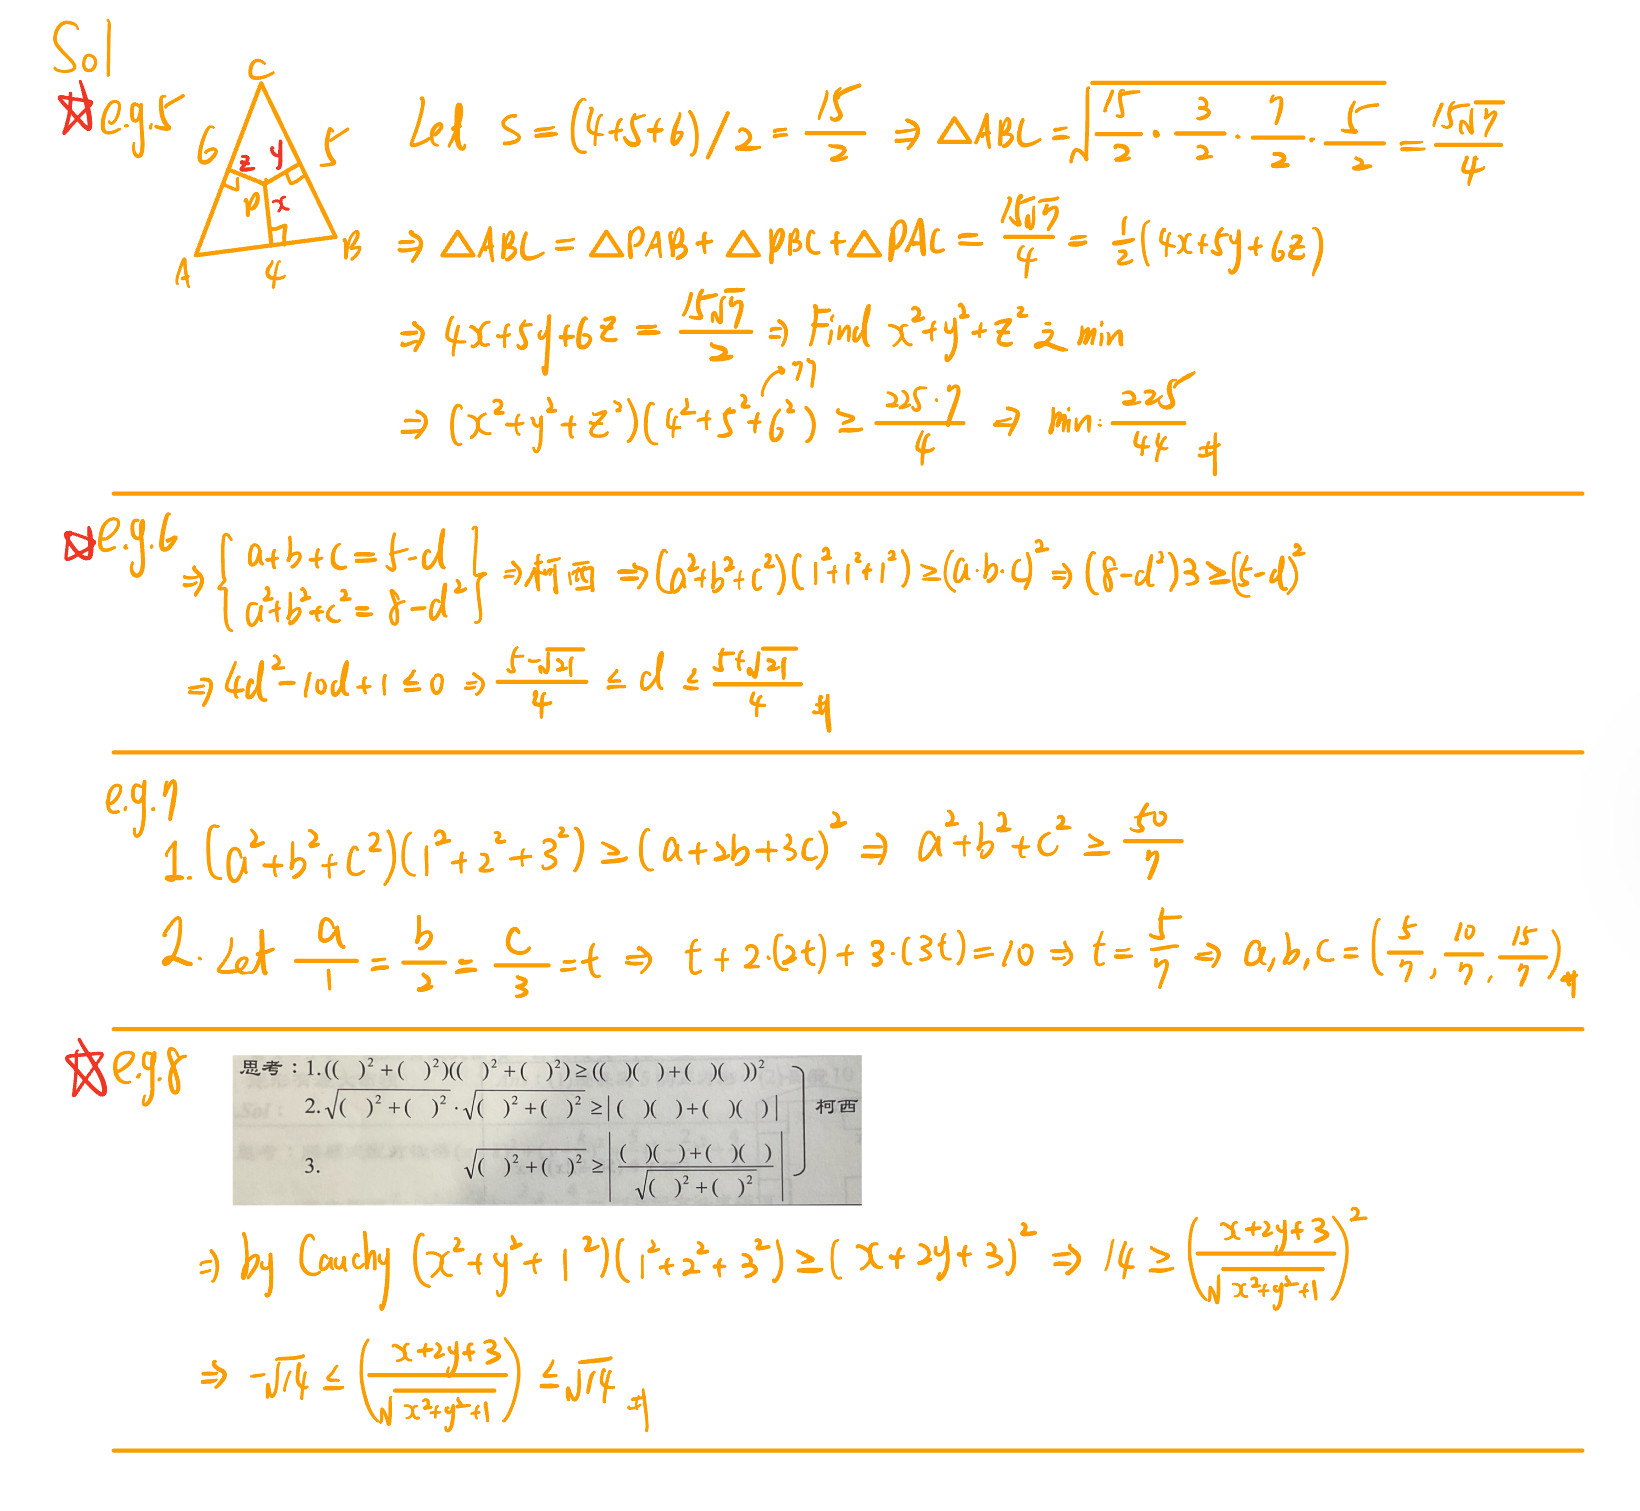 Sol
☆ e.g.5
C
6 z y 5
P x
A 4 B
Let S = (4+5+6)/2 = 15/2 ⇒ △ABC = √(15/2 · 3/2 · 7/2 · 5/2) = 15√7/4
⇒ △ABC = △PAB + △PBC + △PAC = 15√7/4 = 1/2(4x+5y+6z)
⇒ 4x+5y+6z = 15√7/2 ⇒ Find x²+y²+z² 之 min
⇒ (x²+y²+z²)(4²+5²+6²) ≥ 225·7/4 ⇒ min: 225/44 #
77
☆ e.g.6
⇒ { a+b+c = 5-d
a²+b²+c² = 8-d² } ⇒ 柯西 ⇒ (a²+b²+c²)(1²+1²+1²) ≥ (a·b·c)² ⇒ (8-d²)3 ≥ (5-d)²
⇒ 4d²-10d+1 ≤ 0 ⇒ (5-√21)/4 ≤ d ≤ (5+√21)/4 #
e.g.7
1. (a²+b²+c²)(1²+2²+3²) ≥ (a+2b+3c)² ⇒ a²+b²+c² ≥ 50/7
2. Let a/1 = b/2 = c/3 = t ⇒ t + 2·(2t) + 3·(3t) = 10 ⇒ t = 5/7 ⇒ a,b,c = (5/7, 10/7, 15/7) #
☆ e.g.8
思考：1.((  )²+(  )²)((  )²+(  )²) ≥ ((  )(  )+(  )(  ))²
2.√((  )²+(  )²)·√((  )²+(  )²) ≥ |(  )(  )+(  )(  )| 柯西
3. √((  )²+(  )²) ≥ |((  )(  )+(  )(  ))/√((  )²+(  )²)|
⇒ by Cauchy (x²+y²+1²)(1²+2²+3²) ≥ (x+2y+3)² ⇒ 14 ≥ ((x+2y+3)/√(x²+y²+1))²
⇒ -√14 ≤ ((x+2y+3)/√(x²+y²+1)) ≤ √14 #